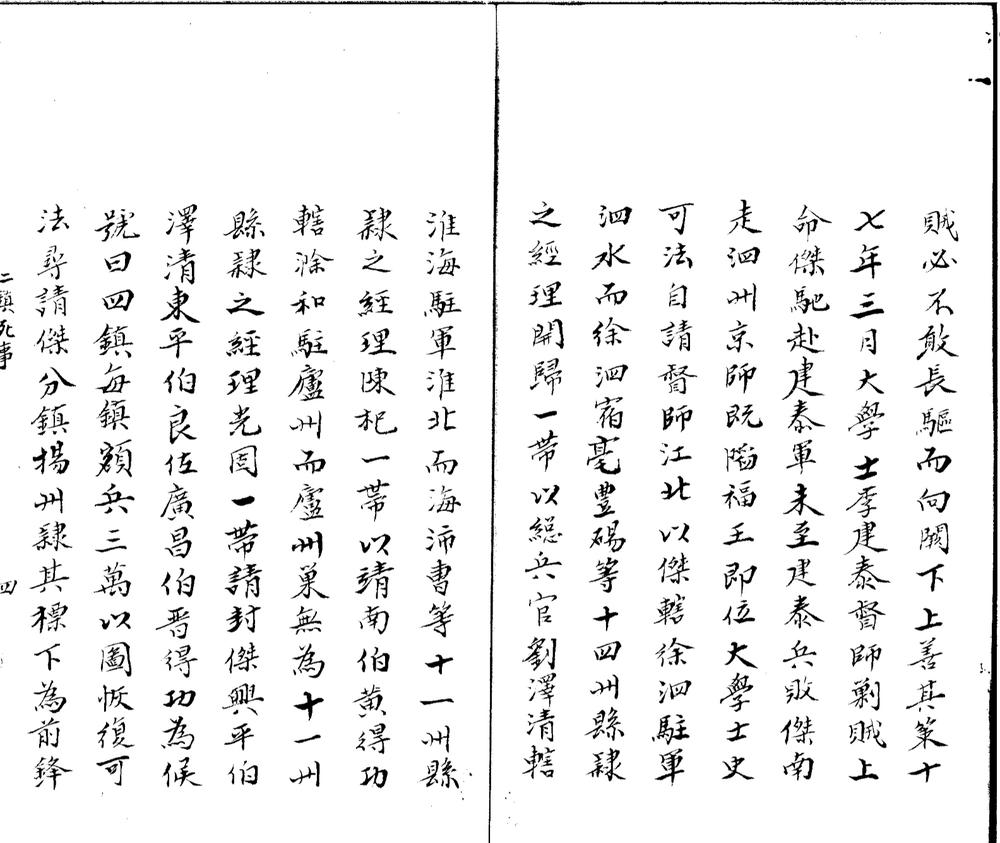 賊必不敢長驅而向闕下上善其策十
七年三月大學士李建泰督師剿賊上
命傑馳赴建泰軍未至建泰兵敗傑南
走泗州京師既陷福王即位大學士史
可法自請督師江北以傑轄徐泗駐軍
泗水而徐泗宿亳豐碭等十四州縣隸
之經理開歸一帶以総兵官劉澤清轄
淮海駐軍淮北而海沛曹等十一州縣
隸之經理陳杞一帶以靖南伯黄得功
轄滁和駐廬州而廬州巢無為十一州
縣隸之經理光固一帶請封傑興平伯
澤清東平伯良佐廣昌伯晋得功為侯
號曰四鎮每鎮額兵三萬以圖恢復可
法尋請傑分鎮揚州隸其標下為前鋒
二鎮死事
四